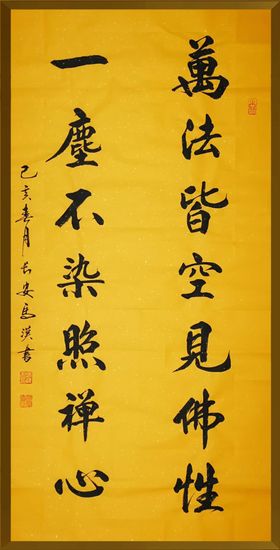 萬法皆空見佛性
一塵不染照禅心
己亥春月長安馬漢書